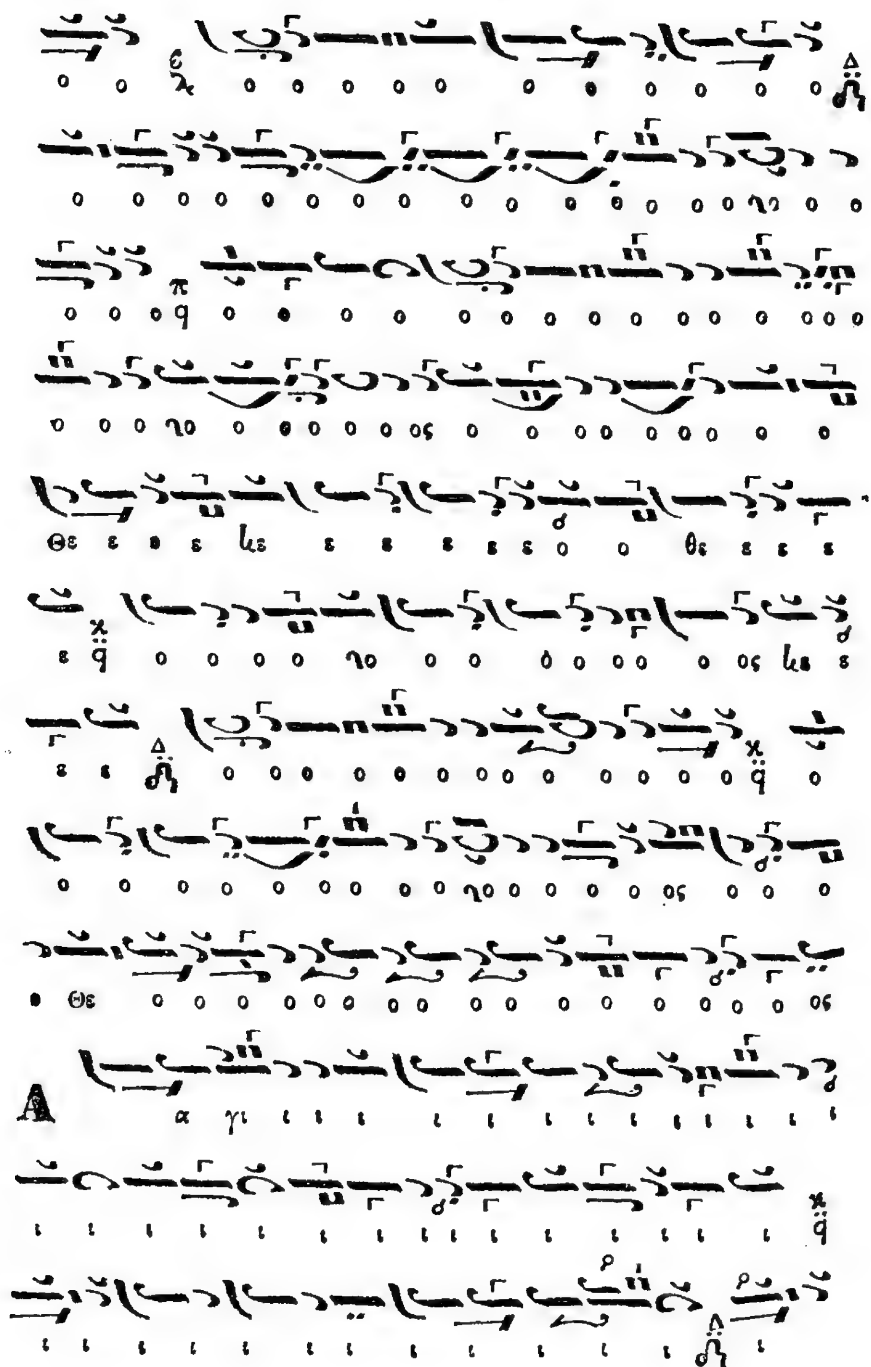 ο ο λ ο ο ο ο ο ο ο ο ο ο ο ο Δ
ο ο ο ο ο ο ο ο ο ο ο ο ο ο ο ο χο ο ο
ο ο ο π q ο ο ο ο ο ο ο ο ο ο ο ο ο ο ο
ο ο ο χο ο ο ο ο ο ος ο ο ο ο ο ο ο ο ο
Θε ε ε ε χε ε ε ε ε ε ο ο θε ε ε ε
ε χ q ο ο ο ο χο ο ο ο ο ο ο ο ος χε ε
ε ε Δ ο ο ο ο ο ο ο ο ο ο ο ο ο χ q ο
ο ο ο ο ο ο ο ο ο χο ο ο ο ο ος ο ο ο
ο Θε ο ο ο ο ο ο ο ο ο ο ο ο ο ο ο ο ος
Α α γι ι ι ι ι ι ι ι ι ι ι ι ι ι
ι ι ι ι ι ι ι ι ι ι ι ι ι ι ι χ q
ι ι ι ι ι ι ι ι ι ι ι ι Δ ι